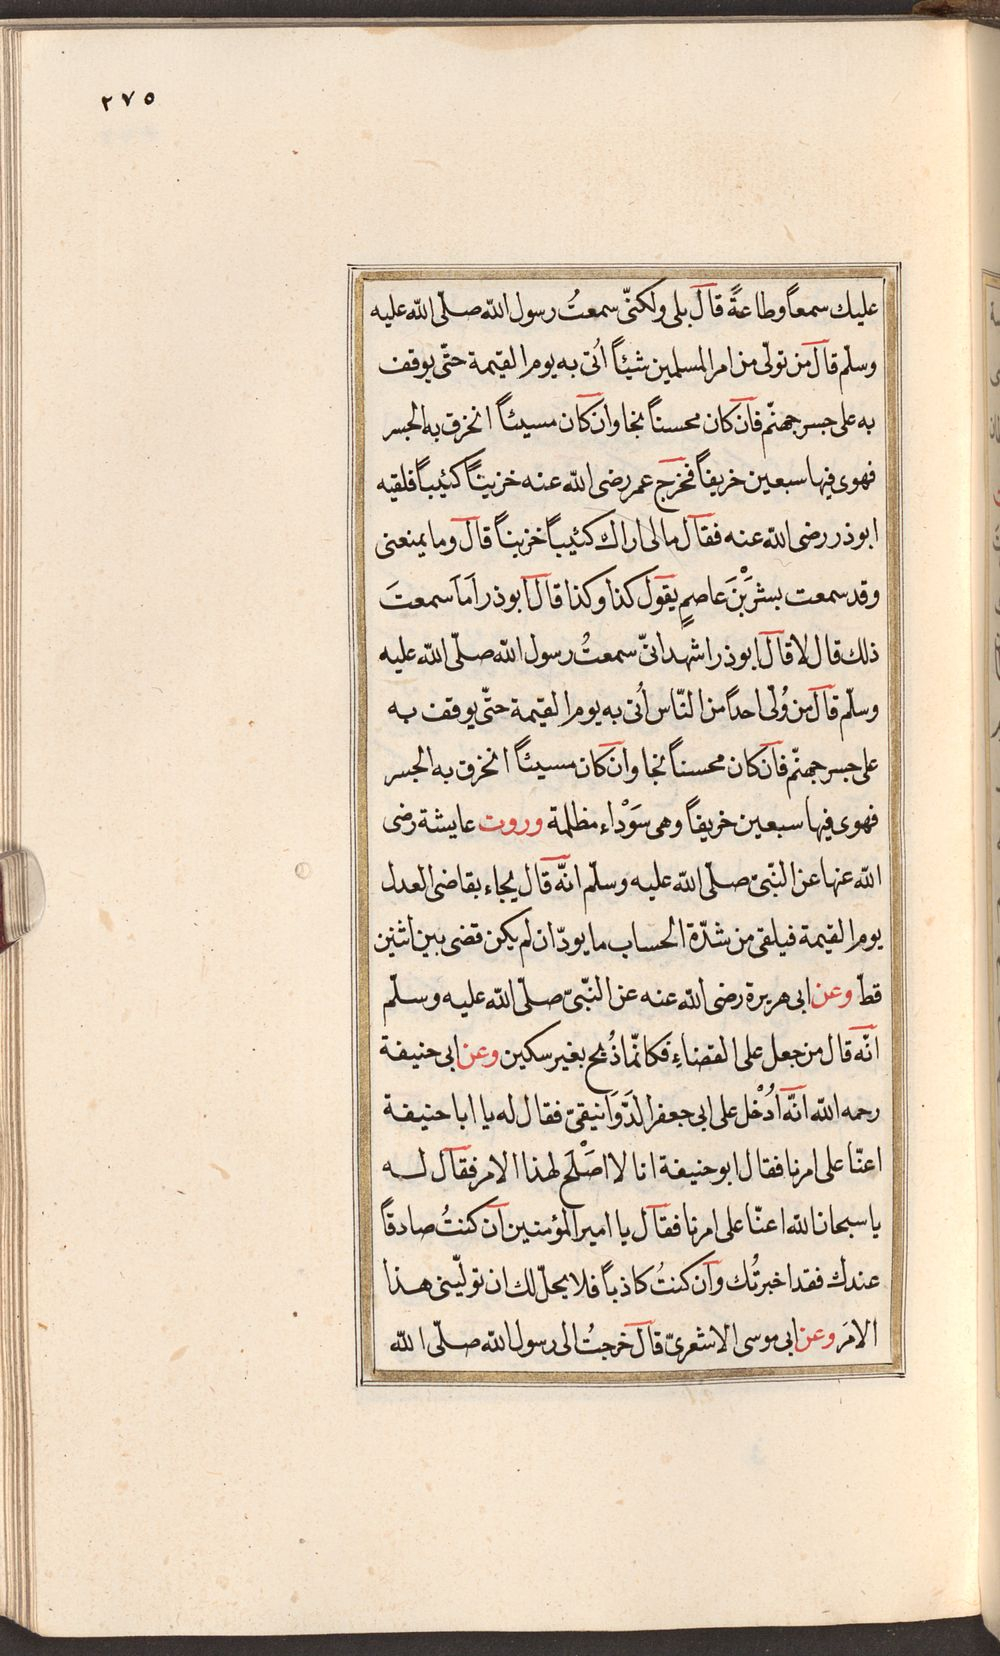 ٢٧٥
عليك سمعاً وطاعةً قال بلى ولكنّى سمعتُ رسول الله صلّى الله عليه
وسلّم قال من تولّى من امر المسلمين شيئاً اُتى به يوم القيمة حتّى يوقف
به على جسر جهنّم فان كان محسناً نجا وان كان مسيئاً انخرق به الجسر
فهوى فيها سبعين خريفاً فخرج عمر رضى الله عنه خزيناً كئيباً فلقيه
ابوذر رضى الله عنه فقال مالى اراك كئيباً خزيناً قال وما يمنعنى
وقد سمعت بشرَ بْنَ عاصمٍ يقول كذا وكذا قال ابوذر اَمَا سمعتَ
ذلك قال لا قال ابوذر اشهد انّى سمعتُ رسول الله صلّى الله عليه
وسلّم قال من وُلّى احداً من النّاس اُتى به يوم القيمة حتّى يوقف به
على جسر جهنّم فان كان محسناً نجا وان كان مسيئاً انخرق به الجسر
فهوى فيها سبعين خريفاً وهى سَوْداء مظلمة وروت عايشة رضى
الله عنها عن النّبىّ صلّى الله عليه وسلّم انّه قال يجاء بقاضى العدل
يوم القيمة فيلقى من شدّة الحساب ما يودّ ان لم يكن قضى بين اثنين
قطّ وعن ابى هريرة رضى الله عنه عن النّبىّ صلّى الله عليه وسلّم
انّه قال من جعل على القضاءِ فكانّما ذُبح بغير سكين وعن ابى حنيفة
رحمه الله انّه اُدْخل على ابى جعفر الدَّوَانيقىّ فقال له يا ابا حنيفة
اعنّا على امرنا فقال ابو حنيفة انا لا اصْلَح لهذا الامر فقال له
يا سبحان الله اعنّا على امرنا فقال يا امير المؤمنين ان كنتُ صادقاً
عندك فقد اخبرتُك وان كنتُ كاذباً فلا يحلّ لك ان تولّينى هذا
الامَر وعن ابى موسى الاشعرىّ قال خرجتُ الى رسول الله صلّى الله